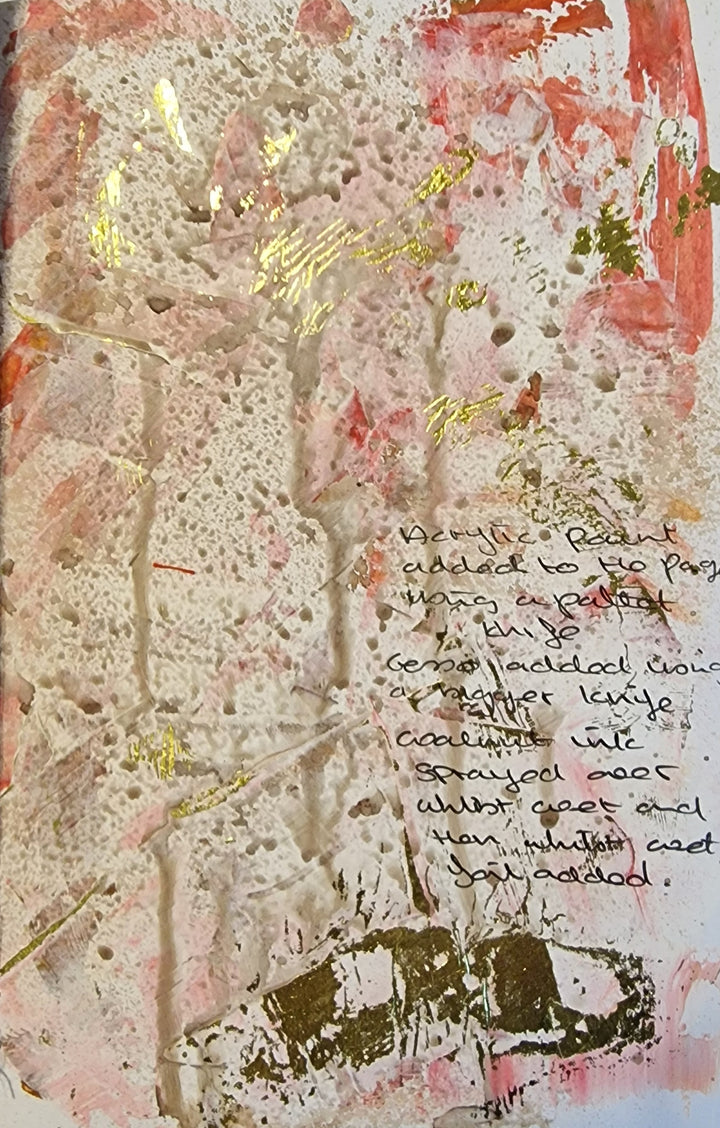 Acrylic paint
added to the pag
using a pallet
knife
Gesso added using
a bigger knife
walnut ink
sprayed over
whilst wet and
then whilst wet
foil added.